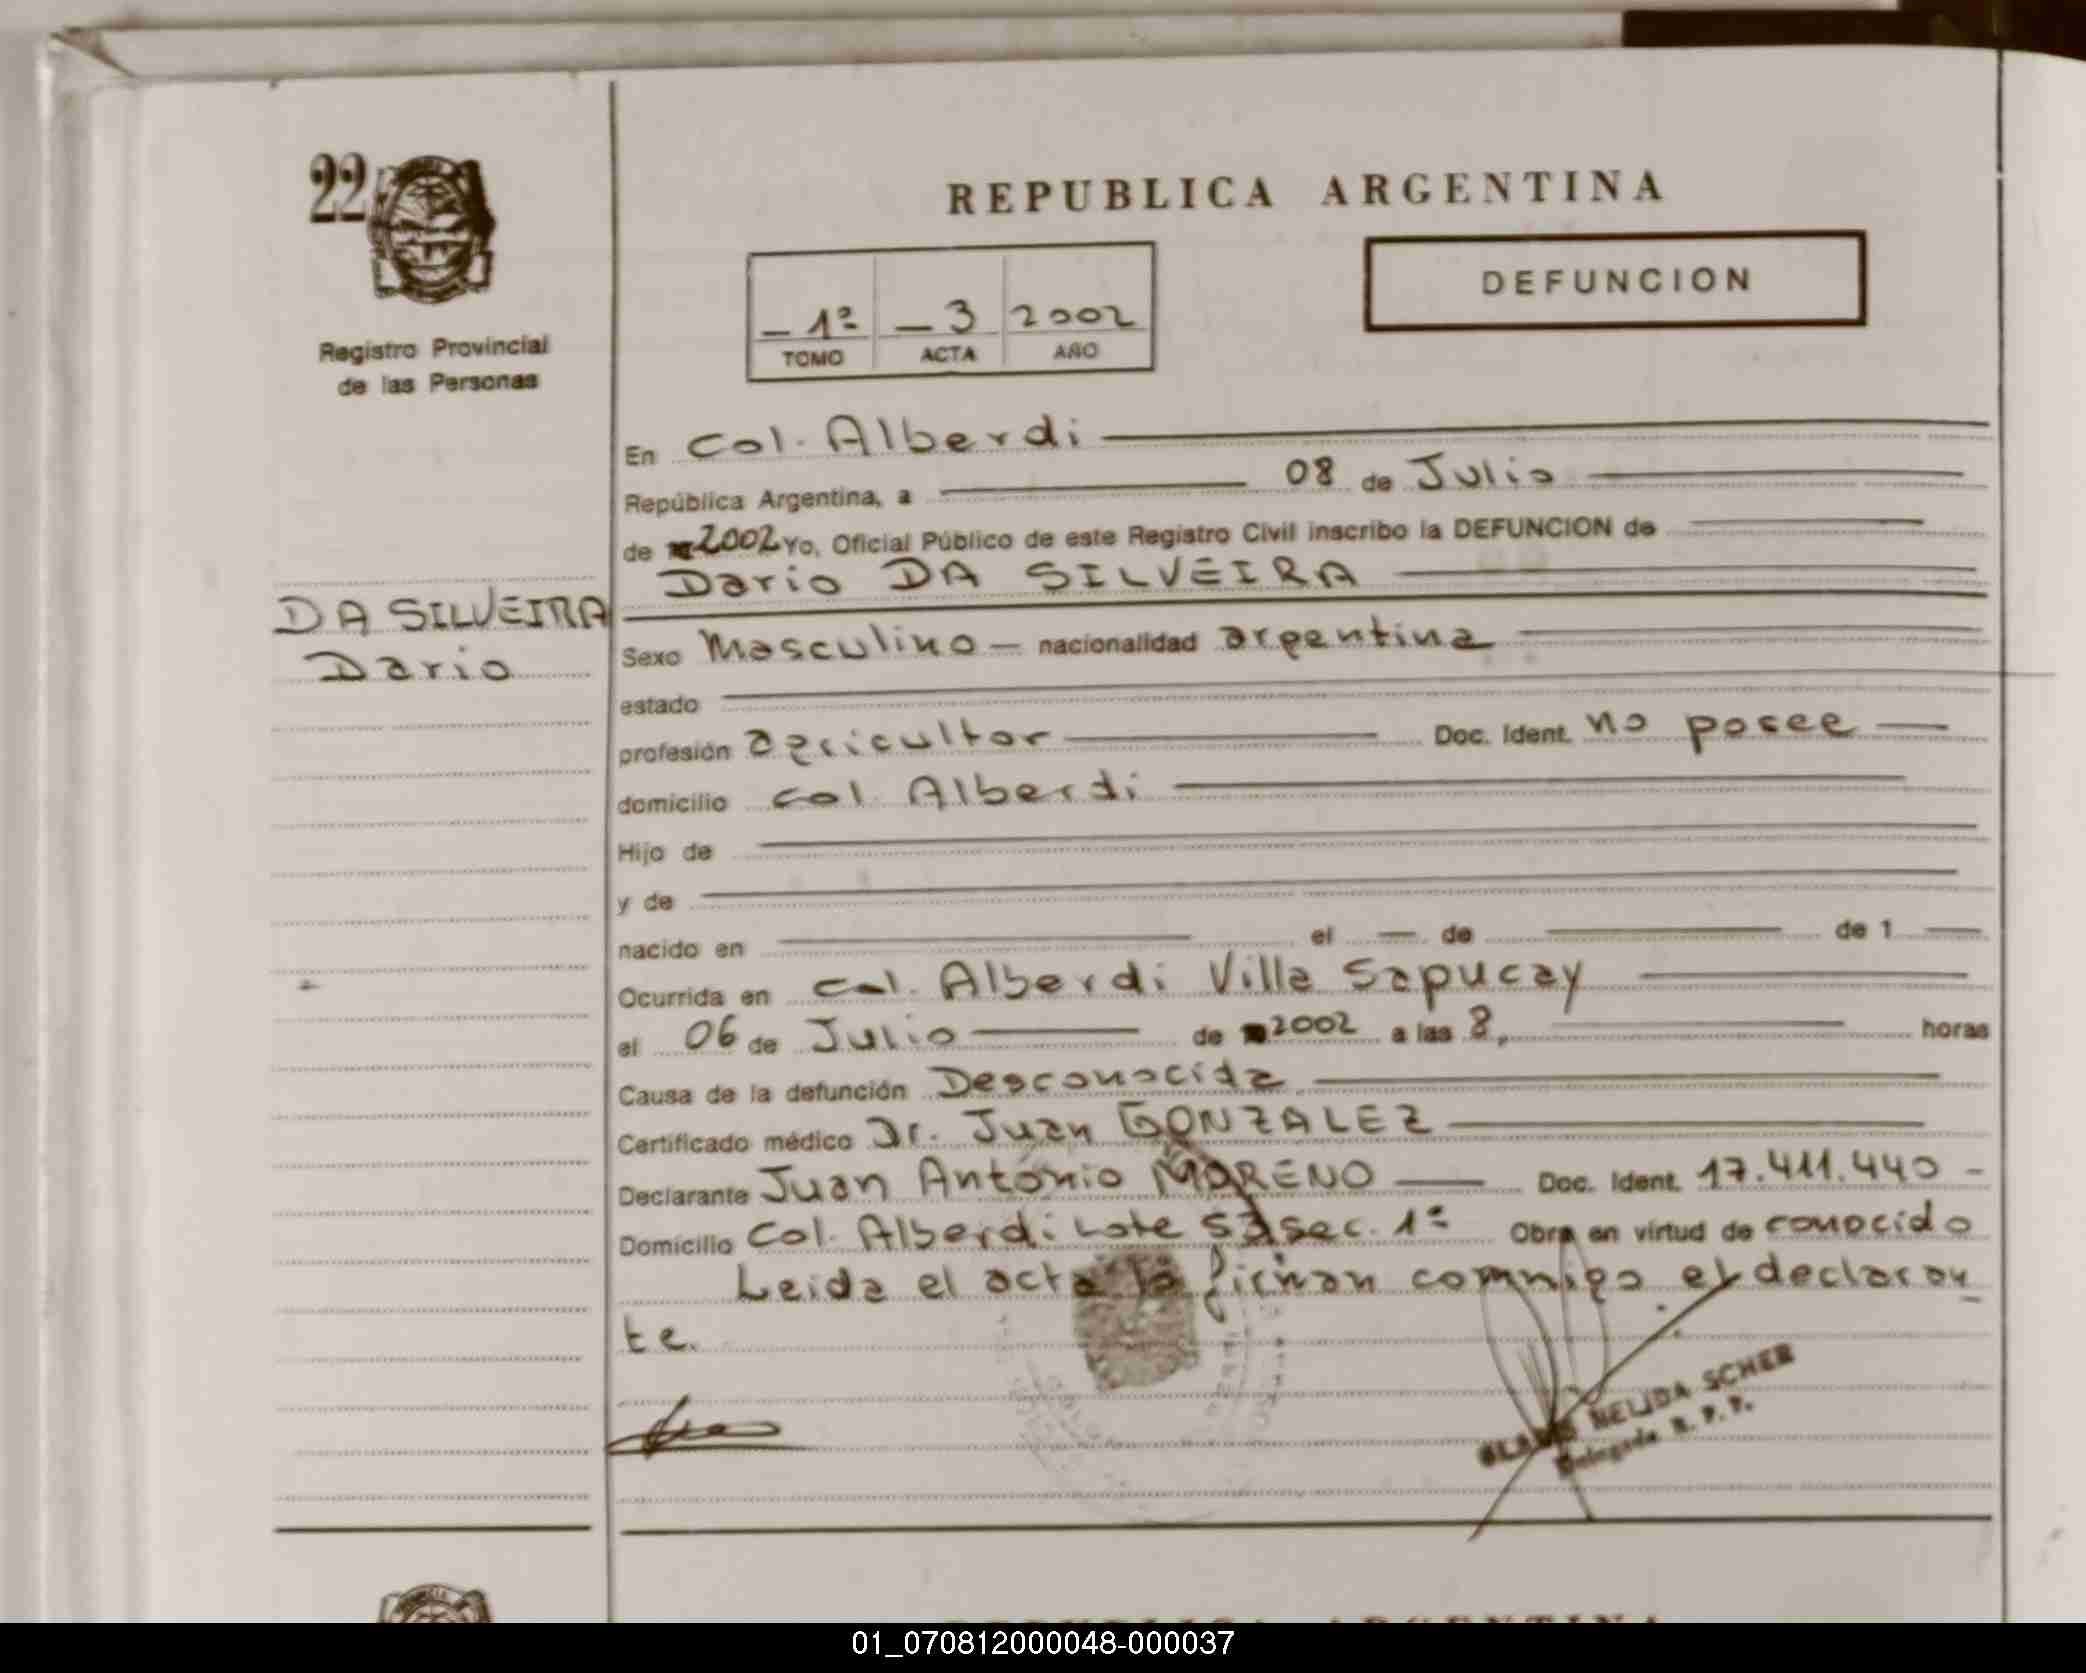 22
Registro Provincial
de las Personas
REPUBLICA ARGENTINA
DEFUNCION
1ª 3 2002
TOMO ACTA AÑO
En Col. Alberdi
República Argentina, a 08 de Julio
de 2002 Yo, Oficial Público de este Registro Civil inscribo la DEFUNCION de
Dario DA SILVEIRA
DA SILVEIRA
Dario
Sexo Masculino — nacionalidad argentina
estado
profesión agricultor Doc. Ident. no posee
domicilio col. Alberdi
Hijo de
y de
nacido en el — de de 1
Ocurrida en Col. Alberdi Villa Sapucay
el 06 de Julio de 2002 a las 8, horas
Causa de la defunción Desconocida
Certificado médico Dr. Juan GONZALEZ
Declarante Juan Antonio MORENO Doc. Ident. 17.411.440 -
Domicilio Col. Alberdi Lote 53 sec. 1ª Obra en virtud de conocido
Leida el acta la firman conmigo el declaran
te.
NELIDA SCHER
Delegada R. P. P.
REPUBLICA ARGENTINA
01_070812000048-000037